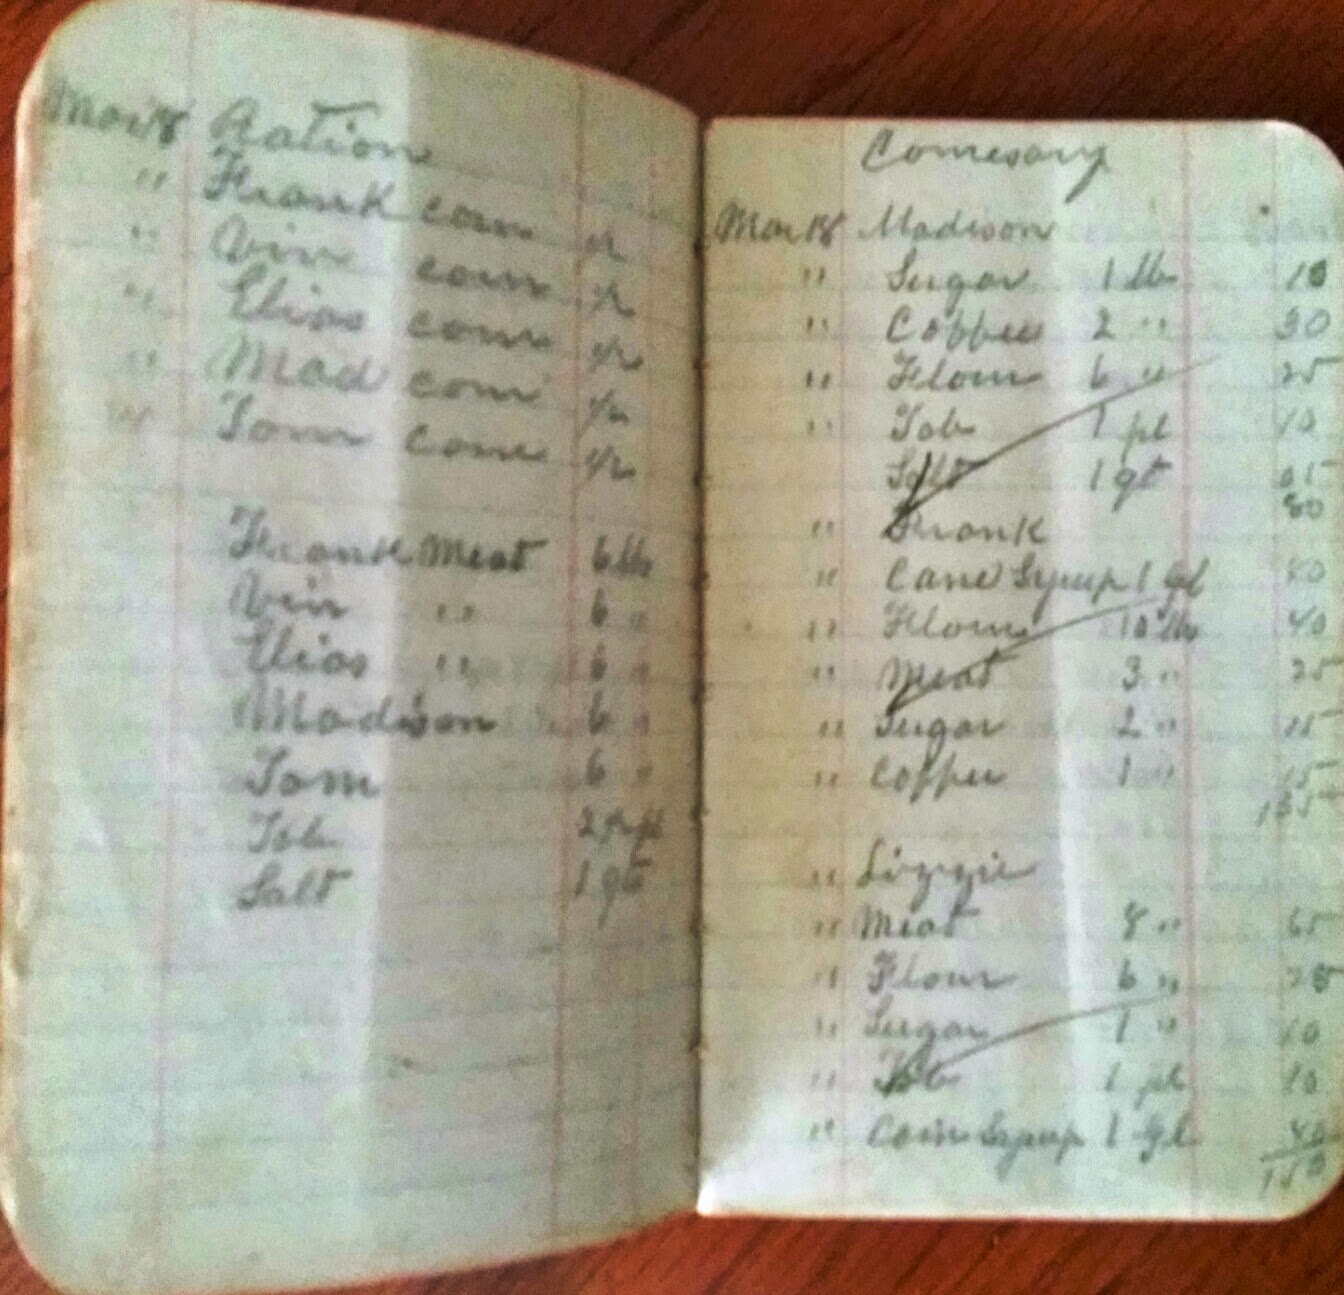 Mar 18 Ration
" Frank corn 1/2
" Vin corn 1/2
" Elias corn 1/2
" Mad corn 1/2
" Tom corn 1/2
Frank Meat 6 lb
Vin " 6 "
Elias " 6 "
Madison 6 "
Tom 6 "
Tob 2
Salt 1 qt
Comesary
Mar 18 Madison
" Sugar 1 lb 10
" Coffee 2 " 30
" Flour 6 " 25
" Tob 1 pl 10
Salt 1 qt 05
80
" Frank
" Cane Syrup 1 gl 40
" Flour 10 lbs 40
" Meat 3 " 25
" Sugar 2 " 15
" Coffee 1 " 15
135
" Lizzie
" Meat 8 " 65
" Flour 6 " 25
" Sugar 1 " 10
" Tob 1 pl 10
" Corn Syrup 1 gl 40
150